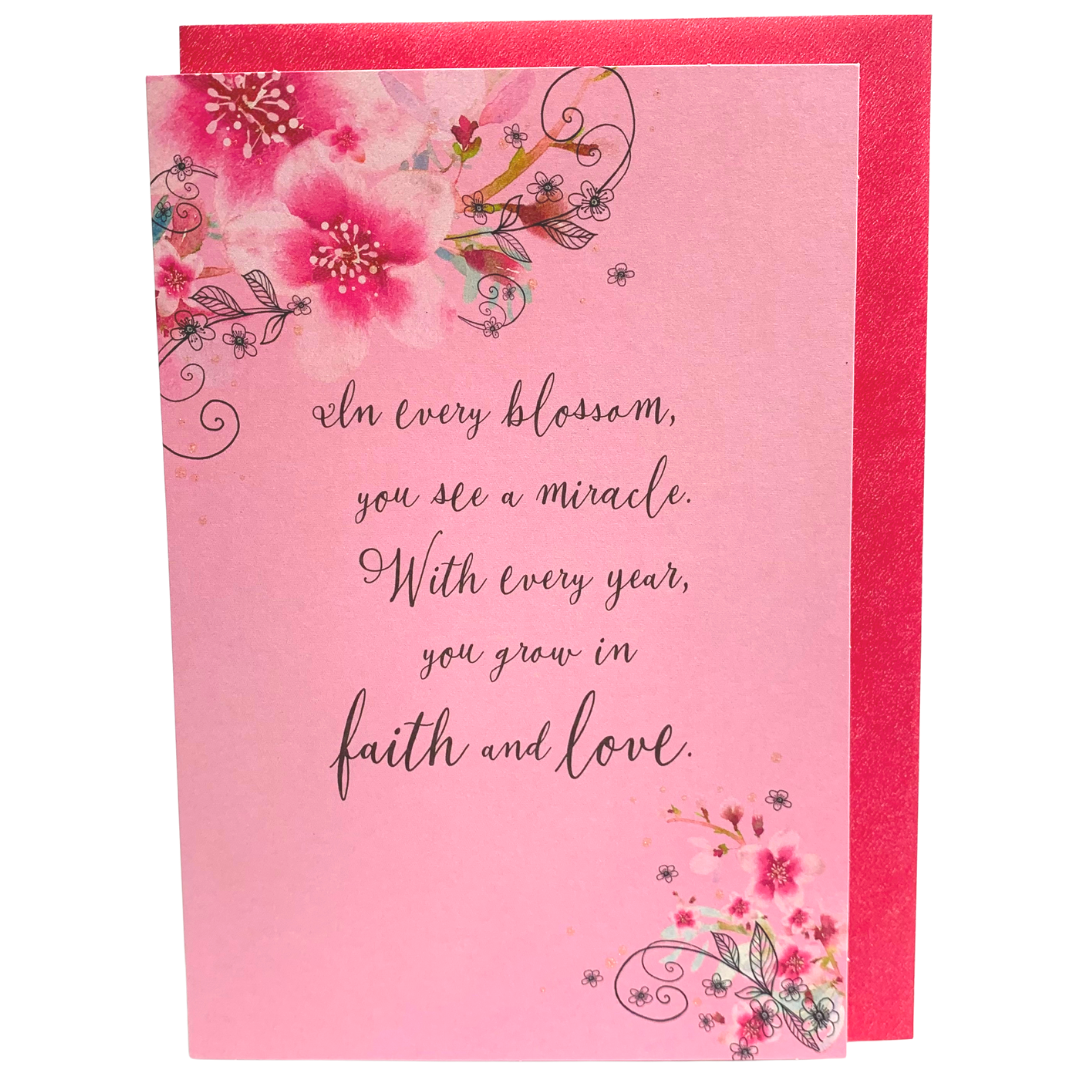 In every blossom,
you see a miracle.
With every year,
you grow in
faith and love.